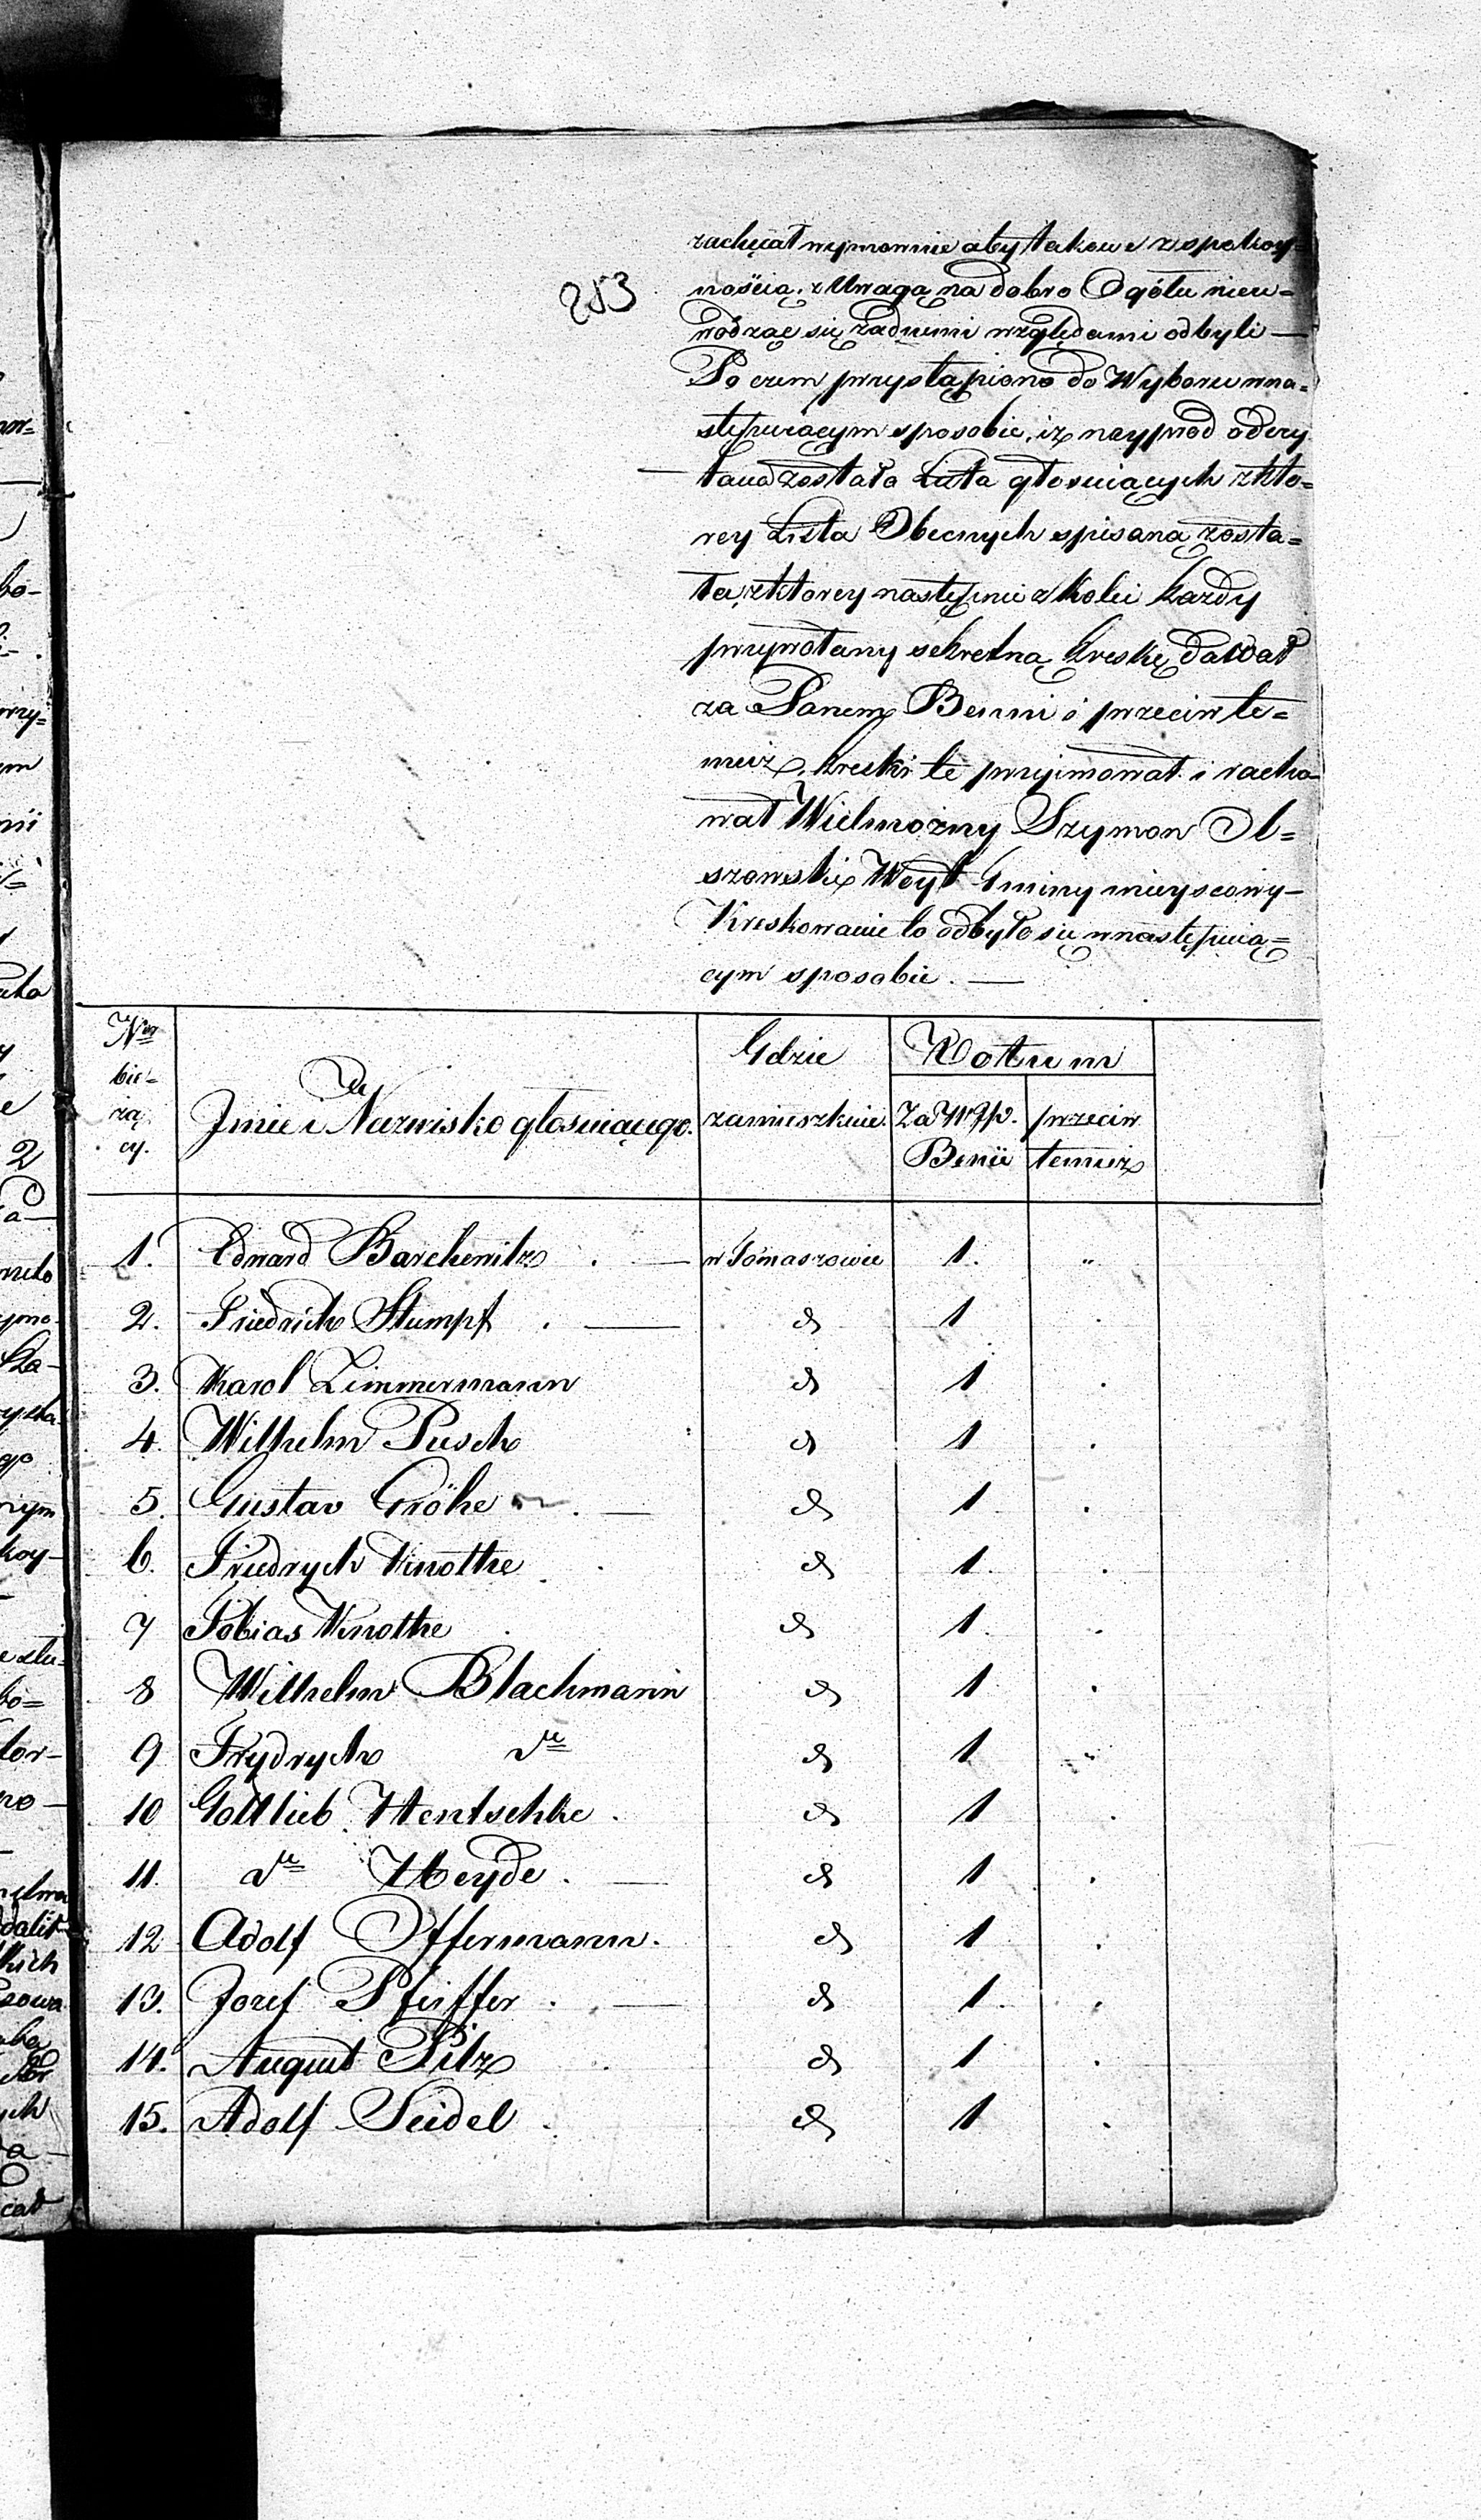 253
zachęcał wymownie aby takowe z spokoy=
nością, z Uwagą na dobro Ogółu nieu=
wodząc się żadnemi względami odbyli —
Po czem przystąpiono do Wyboru wna=
stępuiącym sposobie, iż nayprod odczy
taną została Lista głosuiących z któ=
rey Lista Obecnych spisaną zosta=
ła, z którey następnie z Kolei każdy
przywołany sekretną kreskę dawał
za Panem Benni i przeciw te=
muż, kreski te przyimował i racho-
wał Wielmożny Szymon Ol=
szowski Woyt Gminy mieyscowy —
Kreskowanie to odbyło się wnastępuią=
cym sposobie. —
Nro bie= żą cy. Jmie i Nazwisko głosuiącego. Gdzie zamieszkuie. Votum
Za WJp. Benni przeciw temuż
1. Edward Barchewitz . — w Tomaszowie 1. "
2. Friedrich Stumpf . — d 1 .
3. Karol Zimmermann d 1 .
4. Wilhelm Pusch d 1 .
5. Gustav Gröhe . — d 1 .
6. Friedrych Knothe . d 1. .
7 Tobias Knothe . d 1. .
8 Wilhelm Blachmann d 1 .
9 Frydrych dto d 1 "
10 Gottlieb Hentschke . d 1 .
11. dto Heyde . — d 1 .
12 Adolf Offermann. d 1 .
13. Jozef Pfeiffer . — d 1. .
14. August Pilz . d 1 .
15. Adolf Seidel . d 1 .